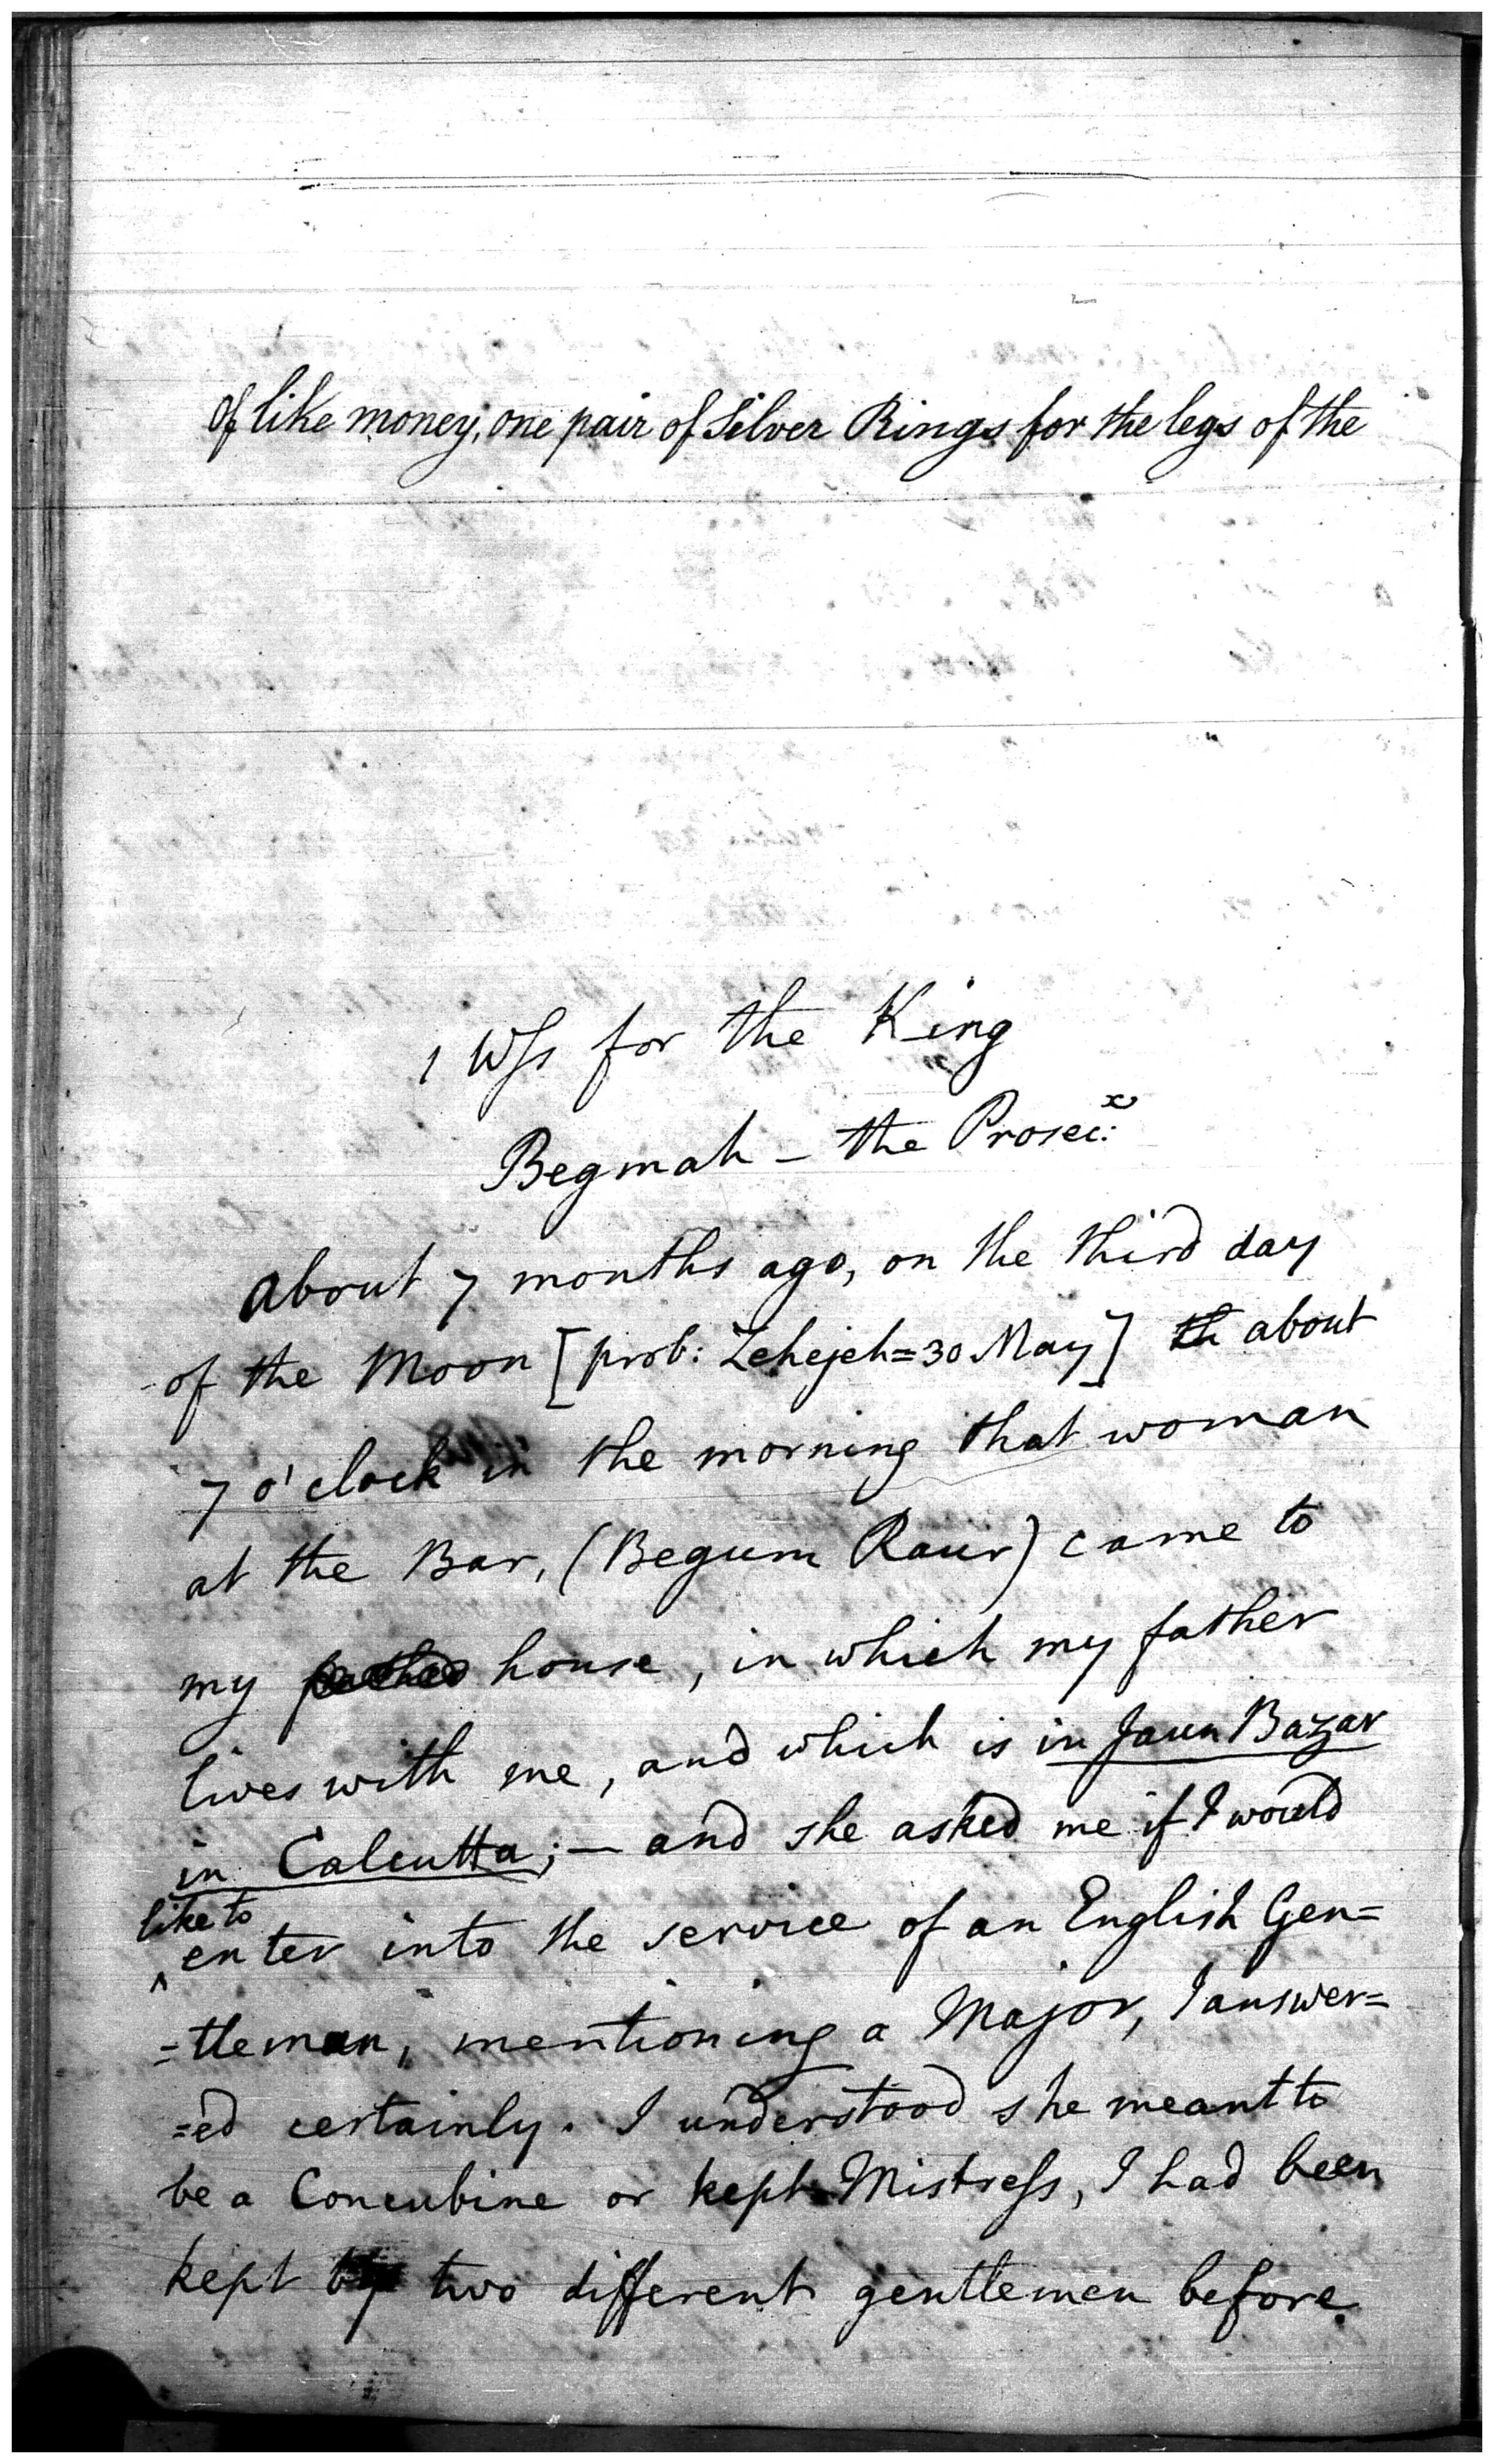 of like money, one pair of Silver Rings for the legs of the
1 Wſs for the King
Begmah – the Prosec:x
About 7 months ago, on the third day
of the Moon [prob: Zehejeh=30 May] th about
7 o'clock in the morning that woman
at the Bar, (Begum Raur) came to
my house, in which my father
lives with me, and which is in Jaun Bazar
in Calcutta; – and she asked me if I would
like to
^enter into the service of an English Gen=
=tleman, mentioning a Major, I answer=
=ed certainly. I understood she meant to
be a Concubine or kept Mistreſs, I had been
kept by two different gentlemen before.